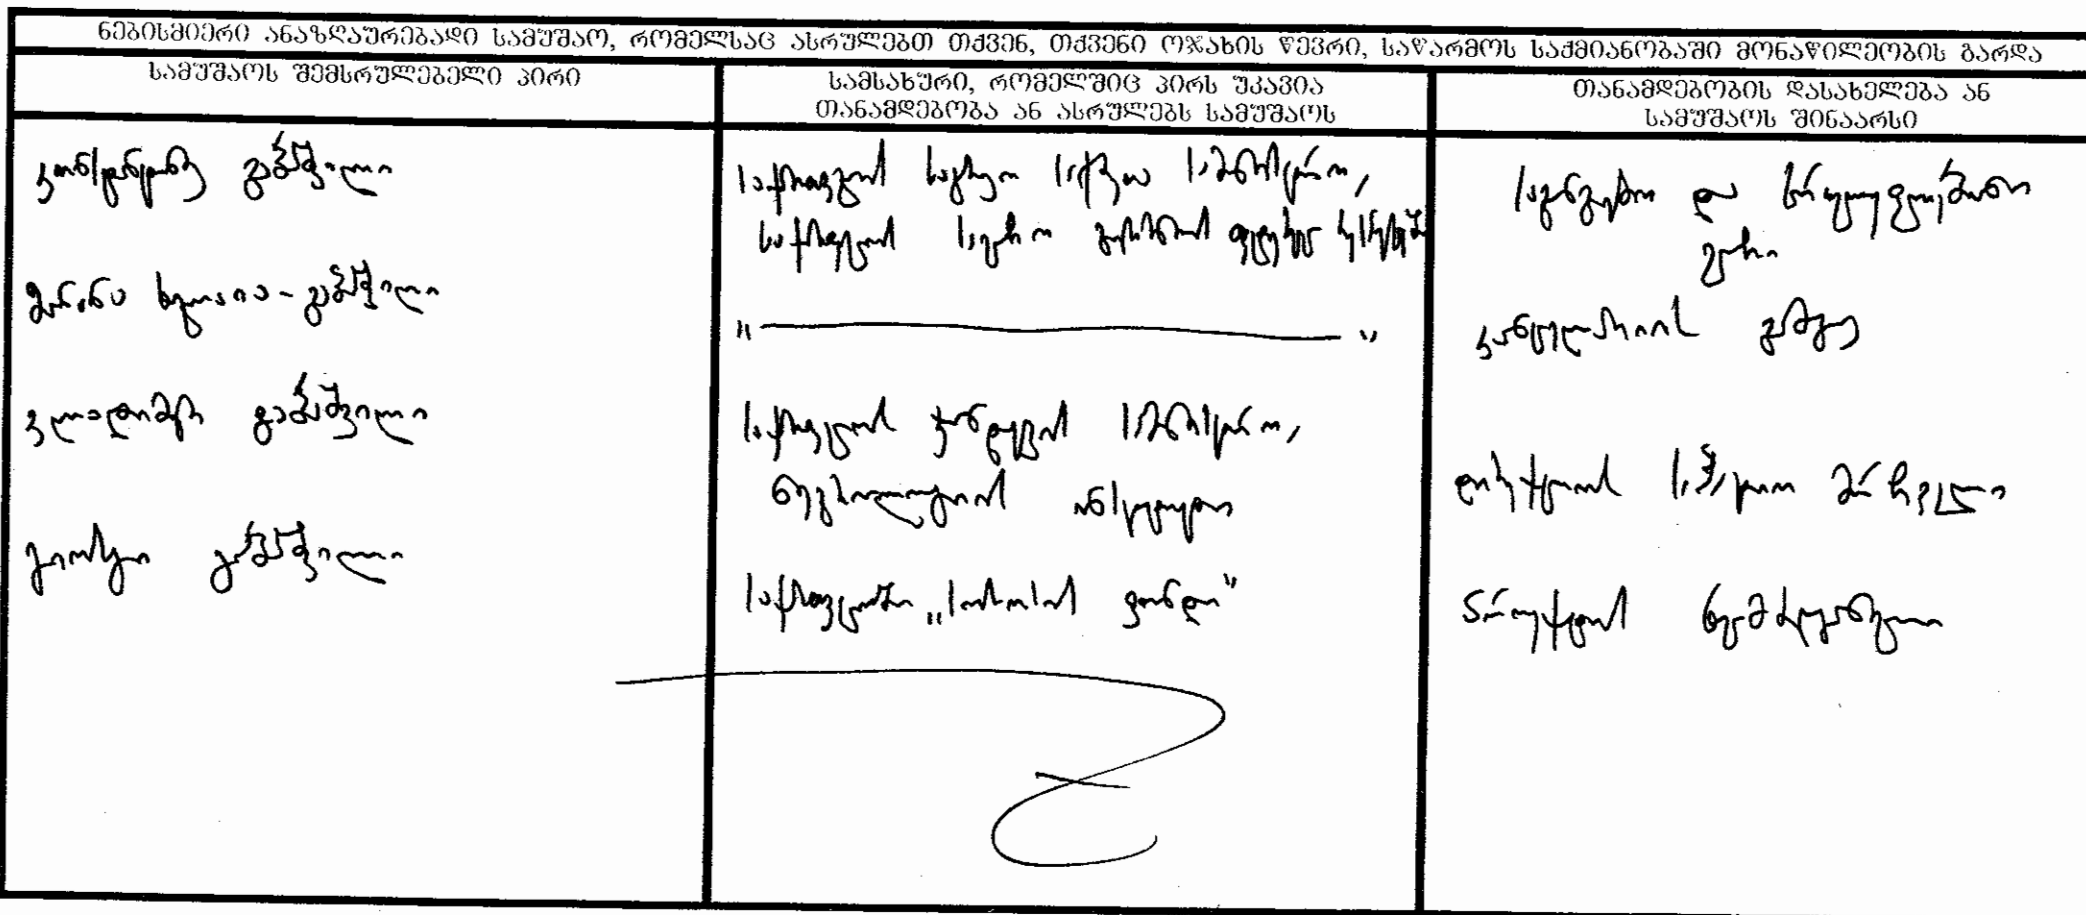 ნებისმიერი ანაზღაურებადი სამუშაო, რომელსაც ასრულებთ თქვენ, თქვენი ოჯახის წევრი, საწარმოს საქმიანობაში მონაწილეობის გარდა
სამუშაოს შემსრულებელი პირი
სამსახური, რომელშიც პირს უკავია
თანამდებობა ან ასრულებს სამუშაოს
თანამდებობის დასახელება ან
სამუშაოს შინაარსი
კონსტანტინე გაბაშვილი
საქართველოს საგარეო საქმეთა სამინისტრო,
საქართველოს საელჩო
საგანგებო და სრულუფლებიანი
ელჩი
გაბაშვილი
" "
კანცელარიის გამგე
ვლადიმერ გაბაშვილი
საქართველოს ჯანდაცვის სამინისტრო,
ნევროლოგიის ინსტიტუტი
დირექტორის მრჩეველი
გიორგი გაბაშვილი
საქართველოში „სოროსის ფონდი"
პროექტის ხელმძღვანელი